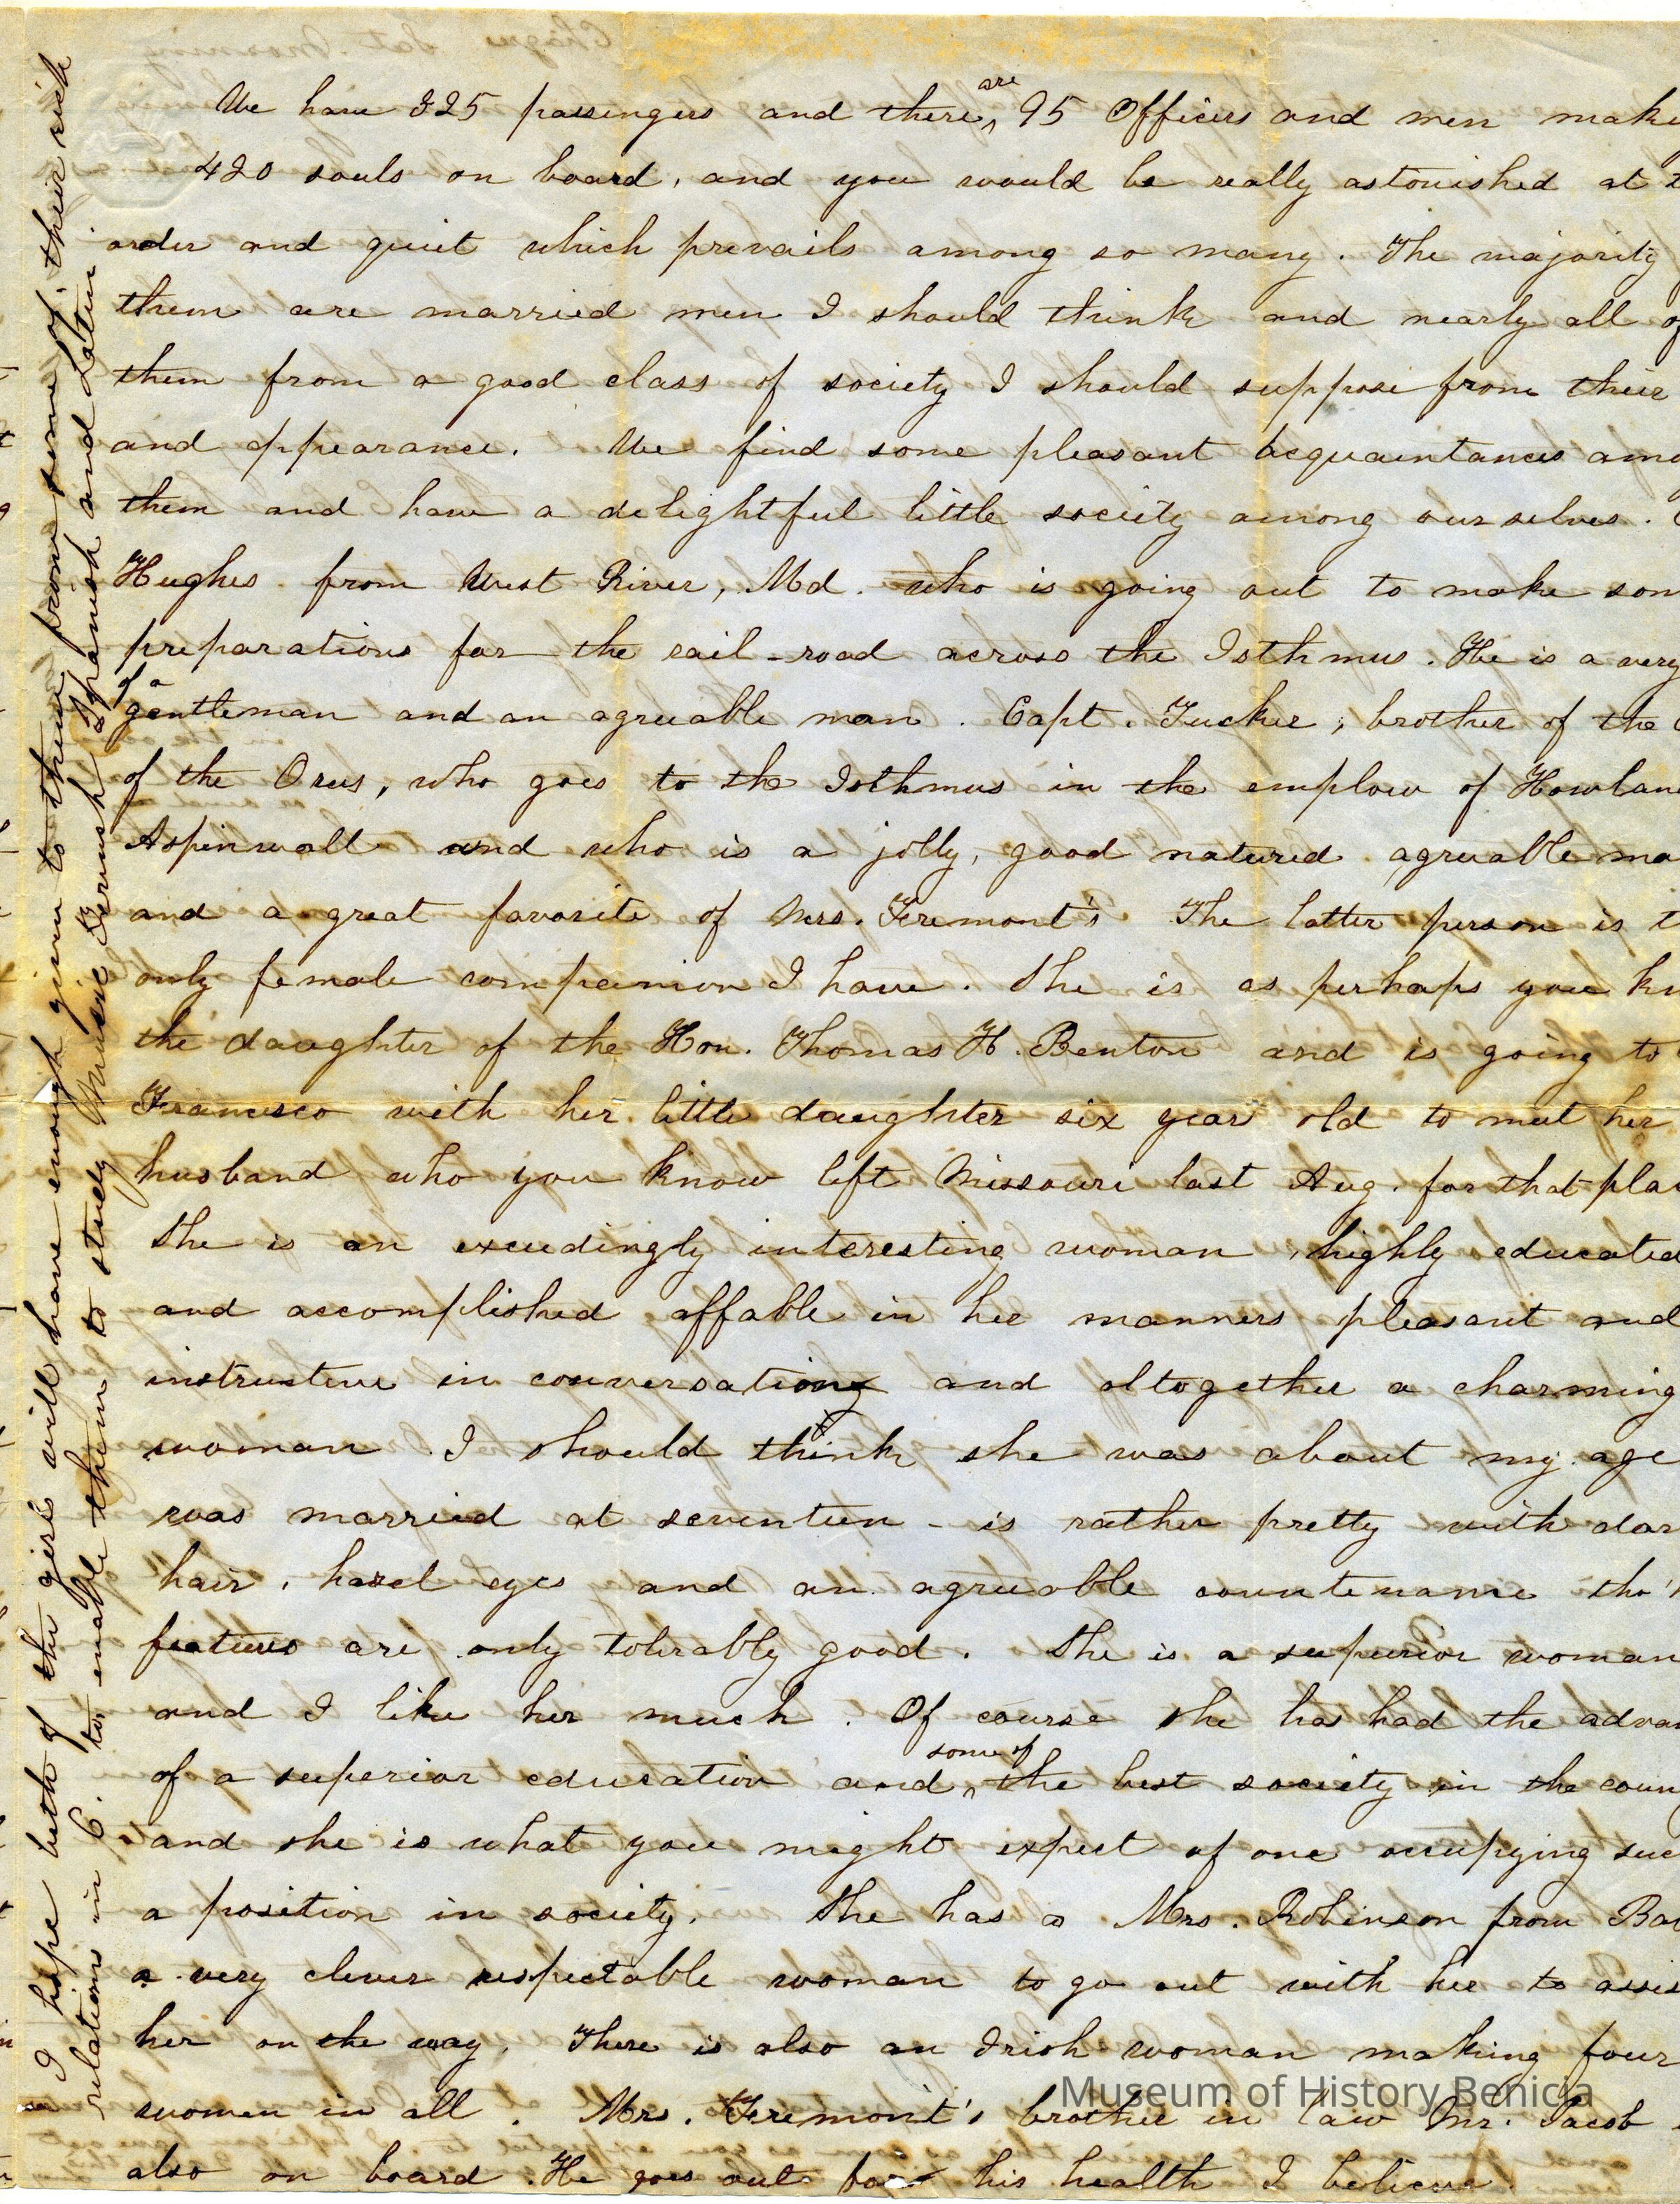 We have 325 passengers and there are 95 Officers and men make
420 souls on board, and you would be really astonished at t
order and quiet which prevails among so many. The majority
them are married men I should think and nearly all of
them from a good class of society I should suppose from their
and appearance. We find some pleasant acquaintances amo
them and have a delightful little society among ourselves.
Hughes from West River, Md. who is going out to make som
preparations for the rail-road across the Isthmus. He is a very
of a
gentleman and an agreeable man. Capt. Tucker, brother of the
of the Orus, who goes to the Isthmus in the employ of Howland
Aspinwall and who is a jolly, good natured agreeable ma
and a great favorite of Mrs. Fremont's The latter person is t
only female companion I have. She is as perhaps you kn
the daughter of the Hon. Thomas H. Benton and is going to
Francisco with her little daughter six year old to meet her
husband who you know left Missouri last Aug. for that plac
She is an exceedingly interesting woman, highly educated
and accomplished affable in her manners pleasant and
instructive in conversation and altogether a charming
woman I should think she was about my age
was married at seventeen - is rather pretty with dar
hair, hazel eyes and an agreeable countenance tho'
features are only tolerably good. She is a superior woman
and I like her much. Of course she has had the advan
of a superior education and some of the best society in the coun
and she is what you might expect of one occupying suc
a position in society. She has a Mrs. Robinson from Bal
a very clever respectable woman to go out with her to assis
her on the way. There is also an Irish woman making four
women in all. Mrs. Fremont's brother in law Mr. Jacob
also on board. He goes out for his health I believe
I hope both of the girls will have enough given to them from some of their rich
relations in B. to enable them to study Music French Spanish and Latin
Museum of History Benicia